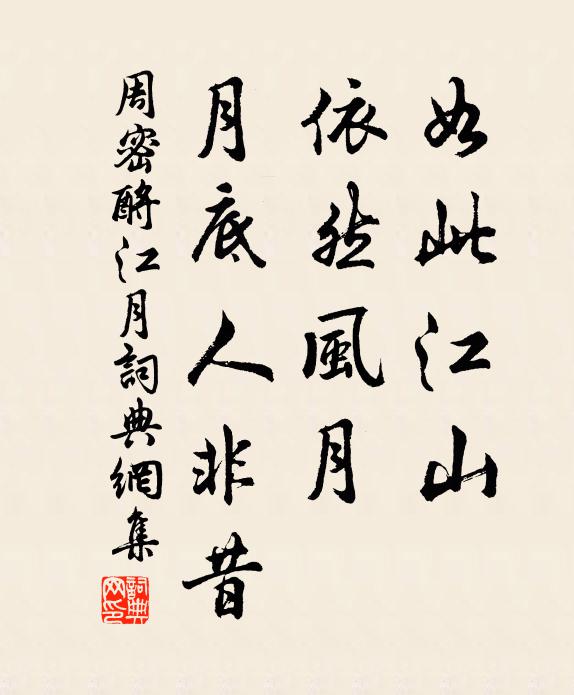 如此江山
依然風月
月底人非昔
周密酹江月詞典網集
詞典網印